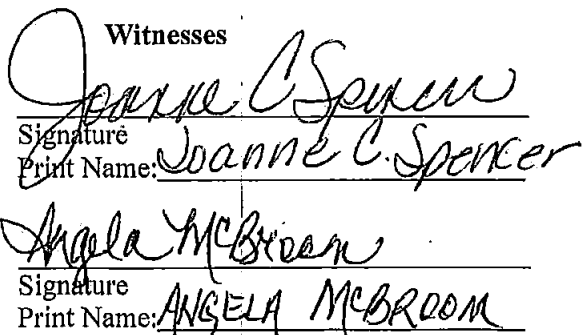 Witnesses
Joanne C Spencer
Signature
Print Name: Joanne C. Spencer
Angela McBroom
Signature
Print Name: ANGELA McBROOM